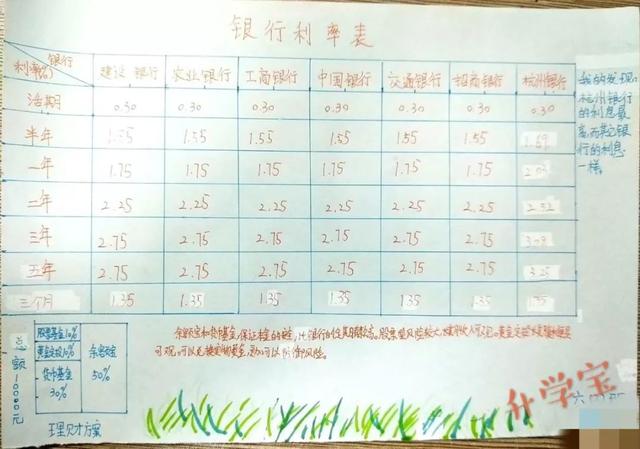 银行利率表
利率(%) 银行 建设银行 农业银行 工商银行 中国银行 交通银行 招商银行 杭州银行
活期 0.30 0.30 0.30 0.30 0.30 0.30 0.30
半年 1.55 1.55 1.55 1.55 1.55 1.55
一年 1.75 1.75 1.75 1.75 1.75 1.75
二年 2.25 2.25 2.25 2.25 2.25 2.25
三年 2.75 2.75 2.75 2.75 2.75 2.75
五年 2.75 2.75 2.75 2.75 2.75 2.75 3.25
三个月 1.35 1.35 1.35 1.35 1.35 1.35
我的发现:
杭州银行
的利息最
高,而其它银
行的利息
一样。
总额10000元
股票基金10%
黄金定投10%
货币基金
30%
余额宝
50%
理财方案
余额宝和货币基金,保证本金的
可观。可以防御风险。
升学宝